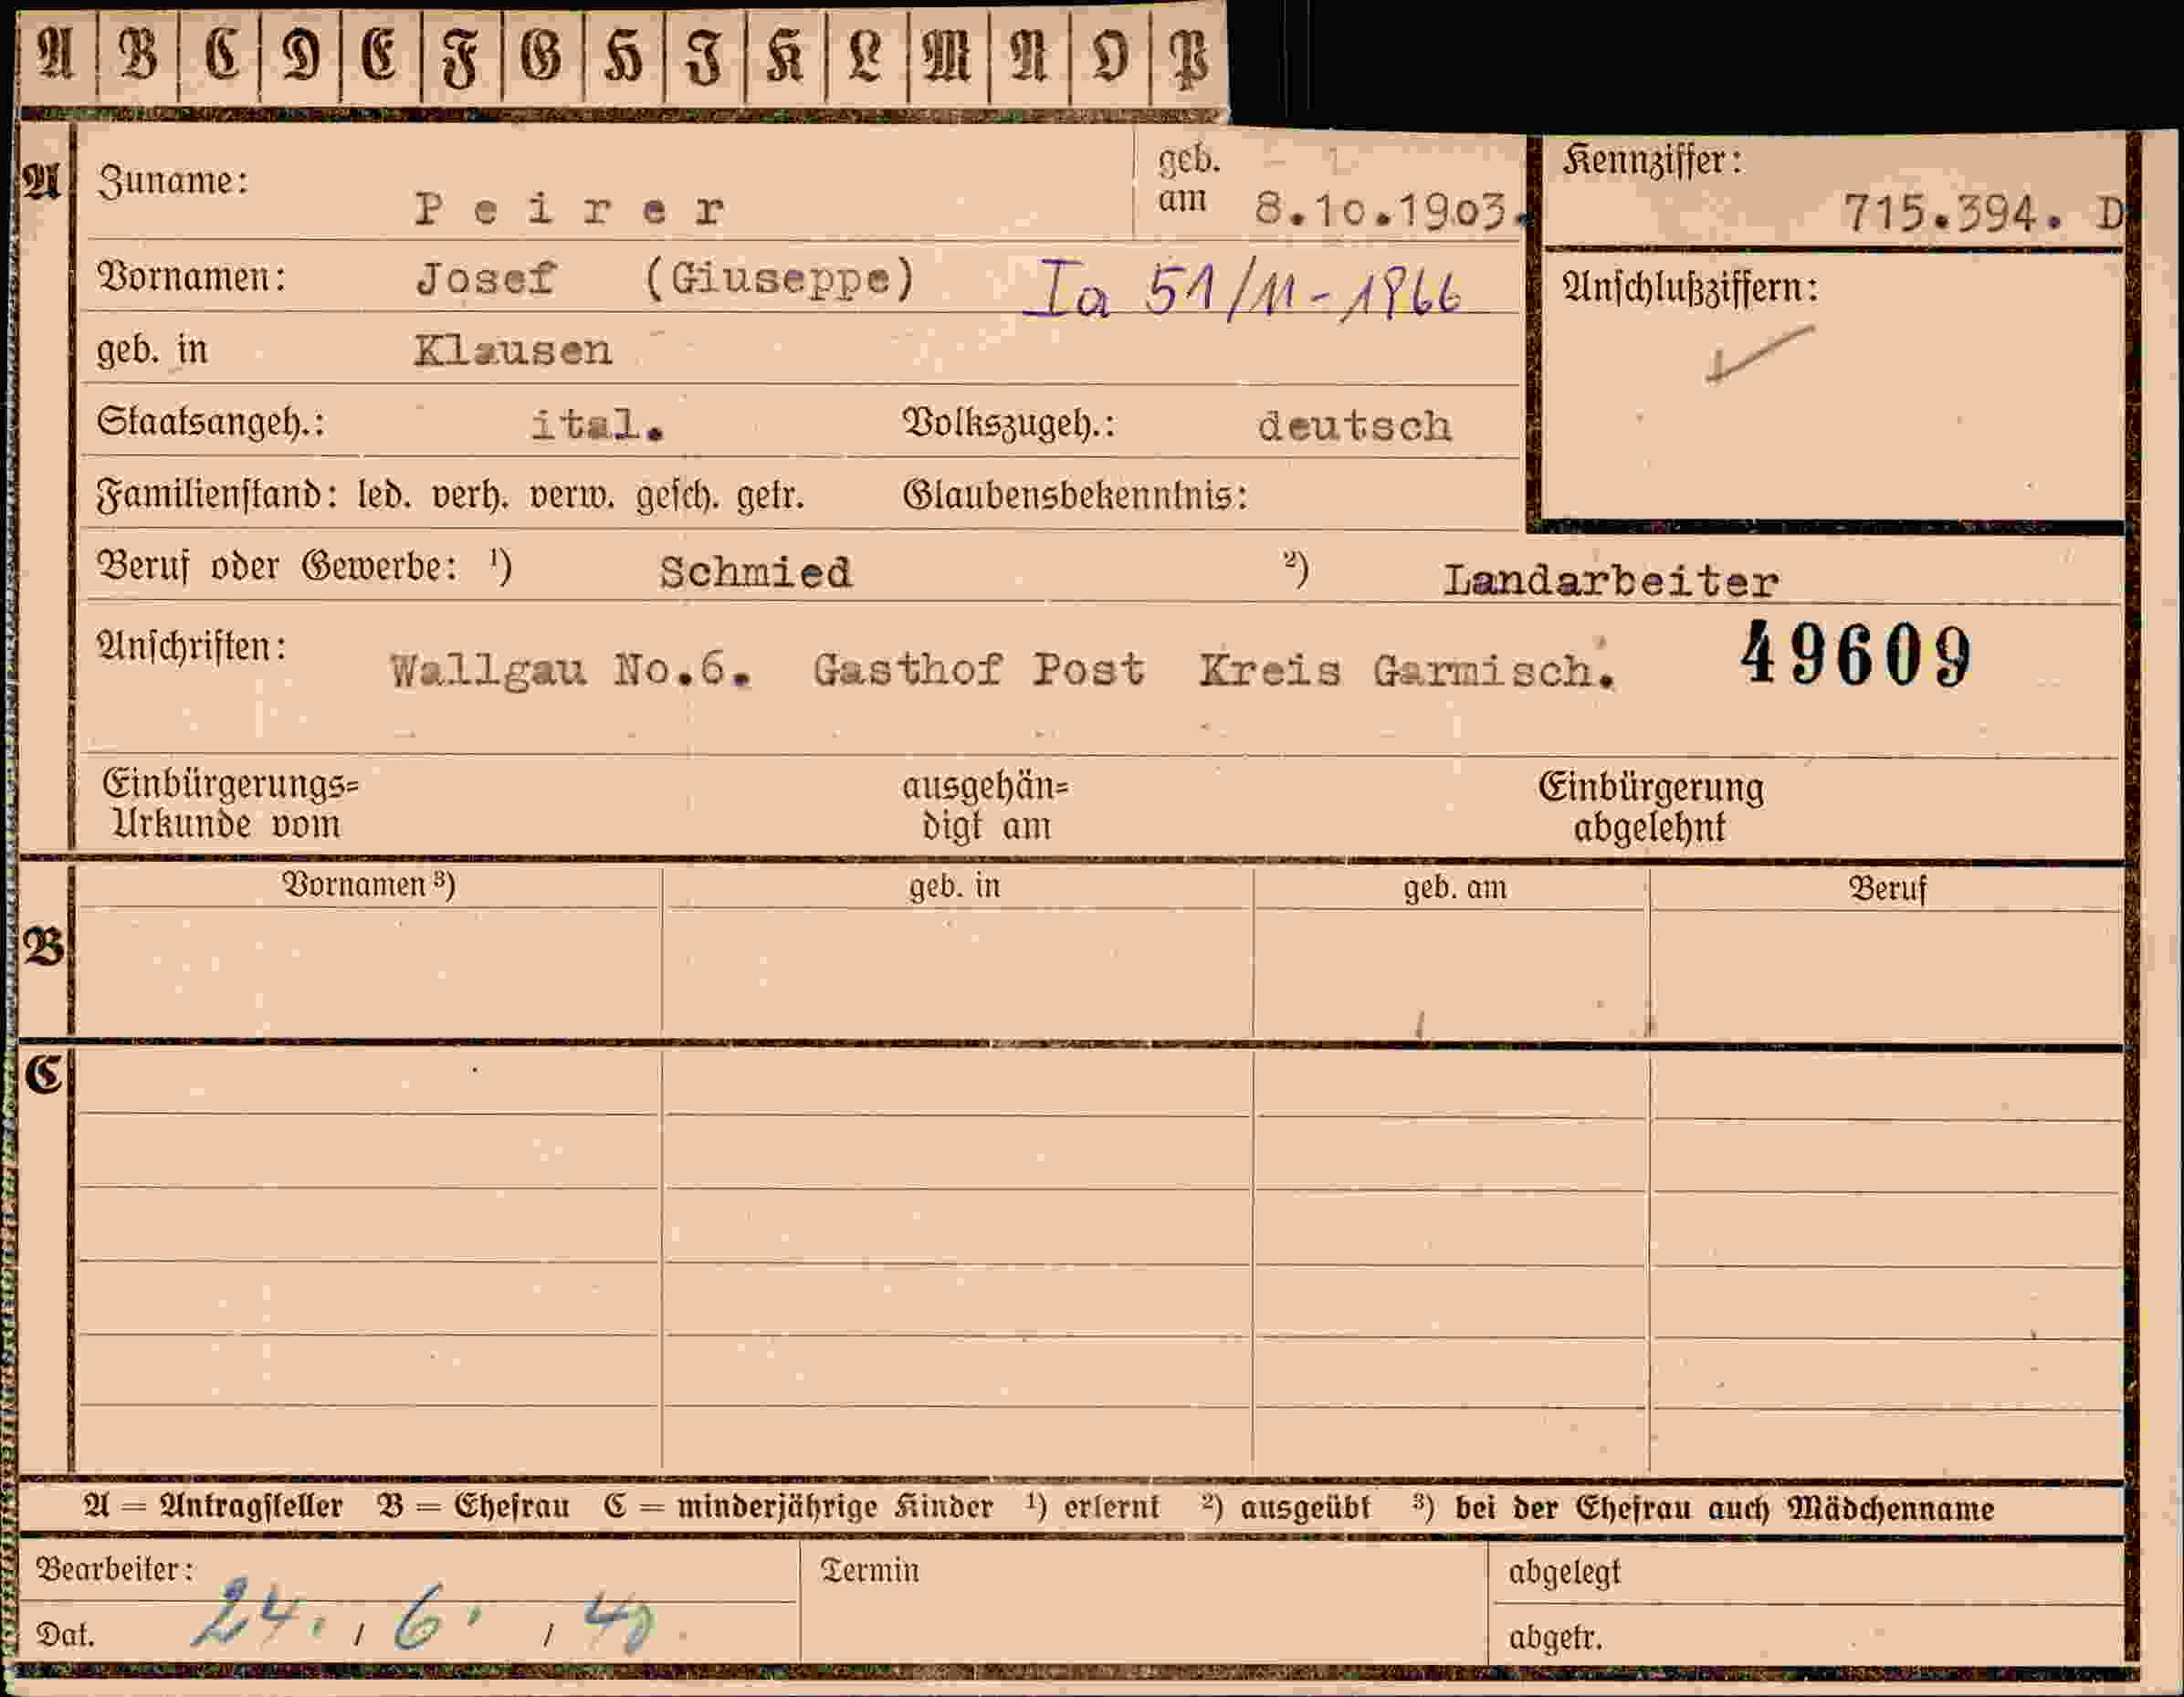 A B C D E F G H I K L M N O P
A Zuname: Peirer geb. am 8.10.1903. Kennziffer: 715.394. D
Vornamen: Josef (Giuseppe) Ia 51/11-1966 Anschlußziffern:
geb. in Klausen
Staatsangeh.: ital. Volkszugeh.: deutsch
Familienstand: led. verh. verw. gesch. getr. Glaubensbekenntnis:
Beruf oder Gewerbe: ¹) Schmied ²) Landarbeiter
Anschriften: Wallgau No.6. Gasthof Post Kreis Garmisch. 49609
Einbürgerungs= ausgehän= Einbürgerung
Urkunde vom digt am abgelehnt
Vornamen ³) geb. in geb. am Beruf
B
C
A = Antragsteller B = Ehefrau C = minderjährige Kinder ¹) erlernt ²) ausgeübt ³) bei der Ehefrau auch Mädchenname
Bearbeiter: Termin abgelegt
Dat. 24. / 6. / 40 abgetr.